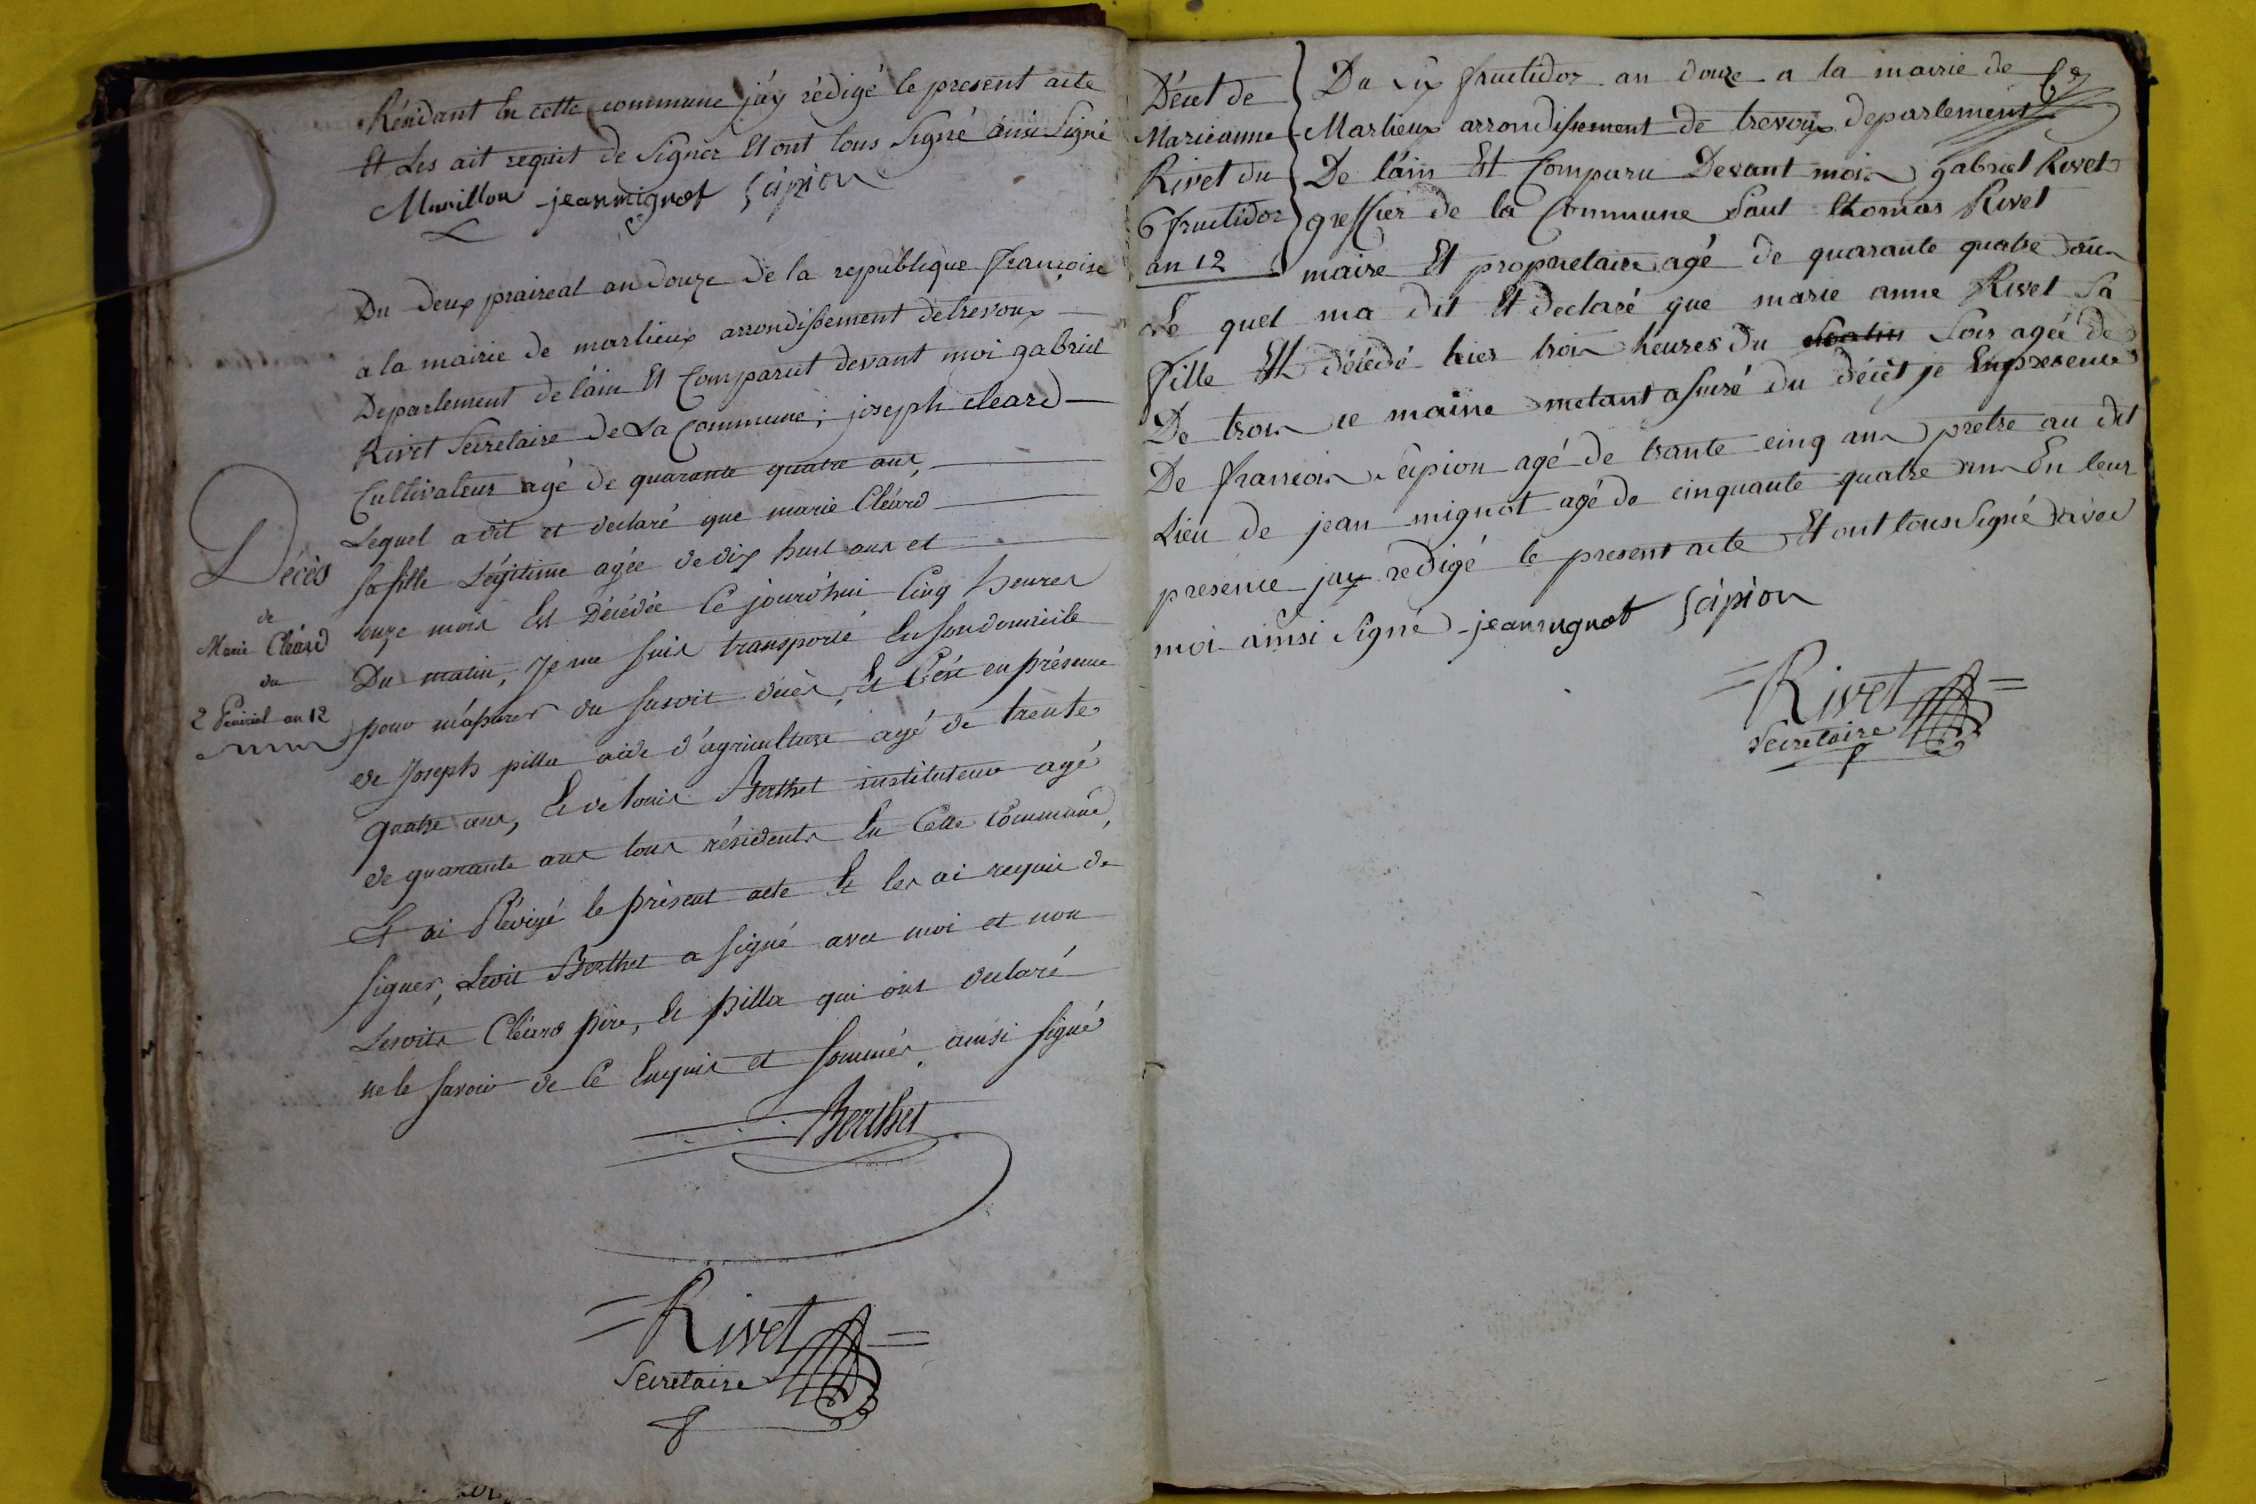 Résidant En cette commune j'ay rédigé le present acte
Et Les ait requit de Signer Et ont tous Signé ainsi Signé
Musillon jeanmignot Scipion
Du deux praireal an douze de la republique françoise
a la mairie de marlieux arrondissement detrevoux
Departement de l'ain Et Comparut devant moi gabriel
Rivet Secretaire de La Commune; joseph cleard
Cultivateur agé de quarante quatre ans,
Lequel a dit et declaré que marie Cléard
Sa fille Légitime agée de dix huit ans et
onze mois Est Décédée Ce jourd'hui Cinq heures
Du matin, Je me suis transporté En son domicile
pour m'assurer du susdit décès, Et C'est en présence
de Joseph pilla aide d'agriculture agé de trente
quatre ans, Et de louis Berthet instituteur agé
de quarante ans tous résidents En Cette Commune,
Et ai Rédigé le présent acte Et les ai requis de
signer, Ledit Berthet a signé avec moi et non
Lesdits Cléard père, Et pilla qui ont declaré
ne le savoir de Ce Enquis et sommés, ainsi signé
Berthet
Rivet
Secretaire
Décès
de
Marie Cléard
du
2 Prairial an 12
67
Décet de
Marieanne
Rivet du
6 fructidor
an 12
Du six fructidor an douze a la mairie de
Marlieux arrondissement de trevoux departement
De l'ain Est Comparu Devant moi gabriel Rivet
greffier de la Commune Saut thomas Rivet
maire Et proprietaire agé de quarante quatre ans
Le quel ma dit Et declaré que marie anne Rivet Sa
fille Est décédé hier trois heures du matin Soir ageé de
De trois se maine metant assuré du décèt je En presence
De francois Scipion agé de trante cinq ans pretre au dit
Lieu de jean mignot agé de cinquante quatre ans En leur
presence jay redigé le present acte Et ont tous Signé avec
moi ainsi Signé jeanmignot Scipion
Rivet
Secretaire